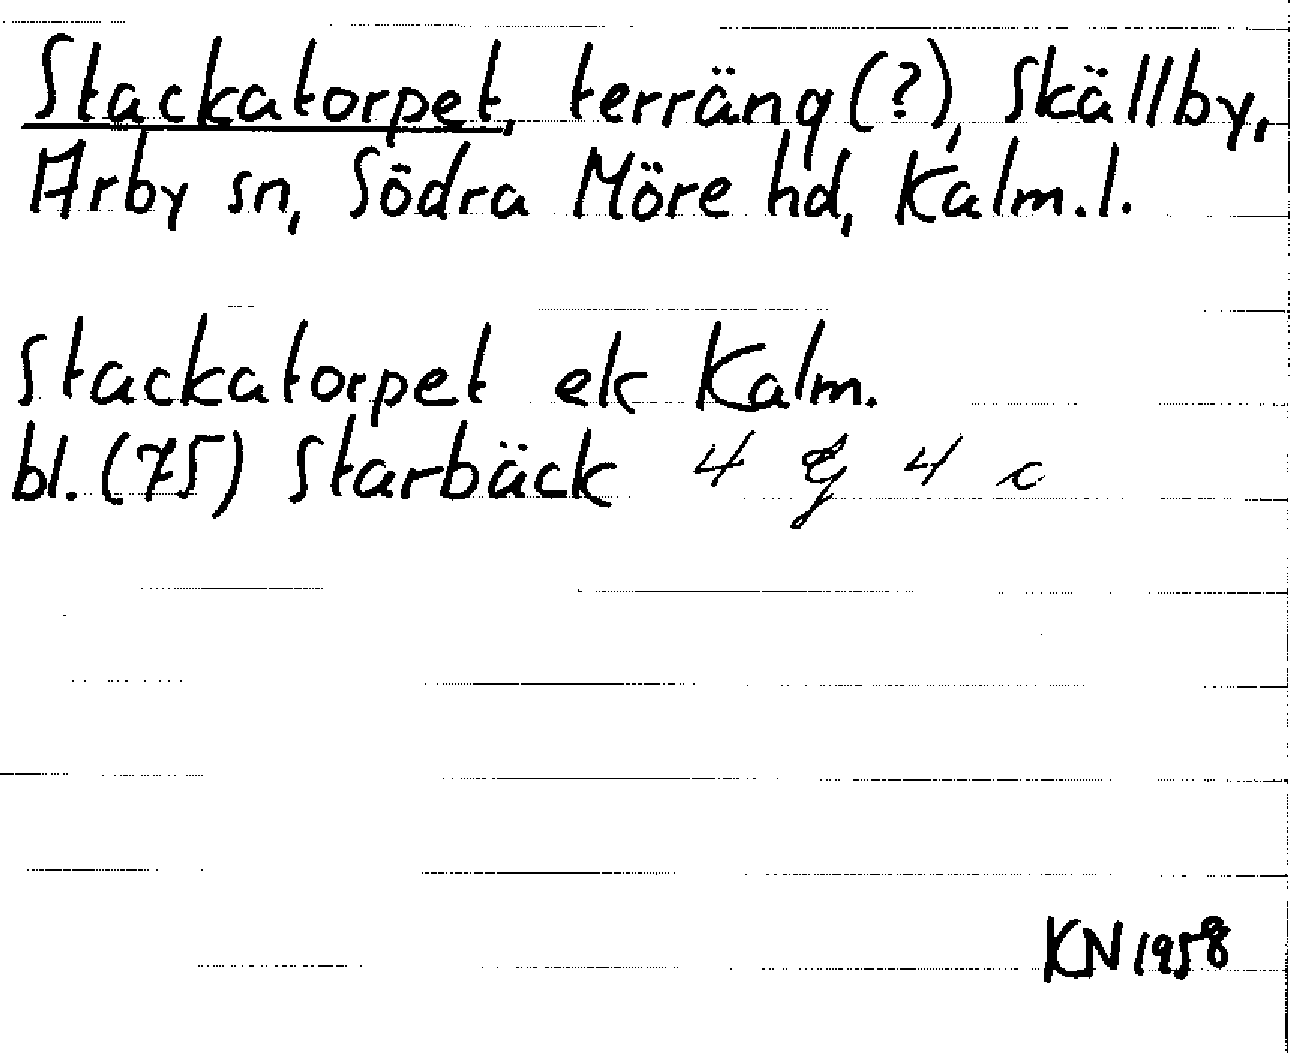 Stackatorpet, terräng(?), Skällby,
Arby sn, Södra Möre hd, Kalm.l.
Stackatorpet ek Kalm.
bl.(75) Starbäck 4 g 4 c
KN 1958